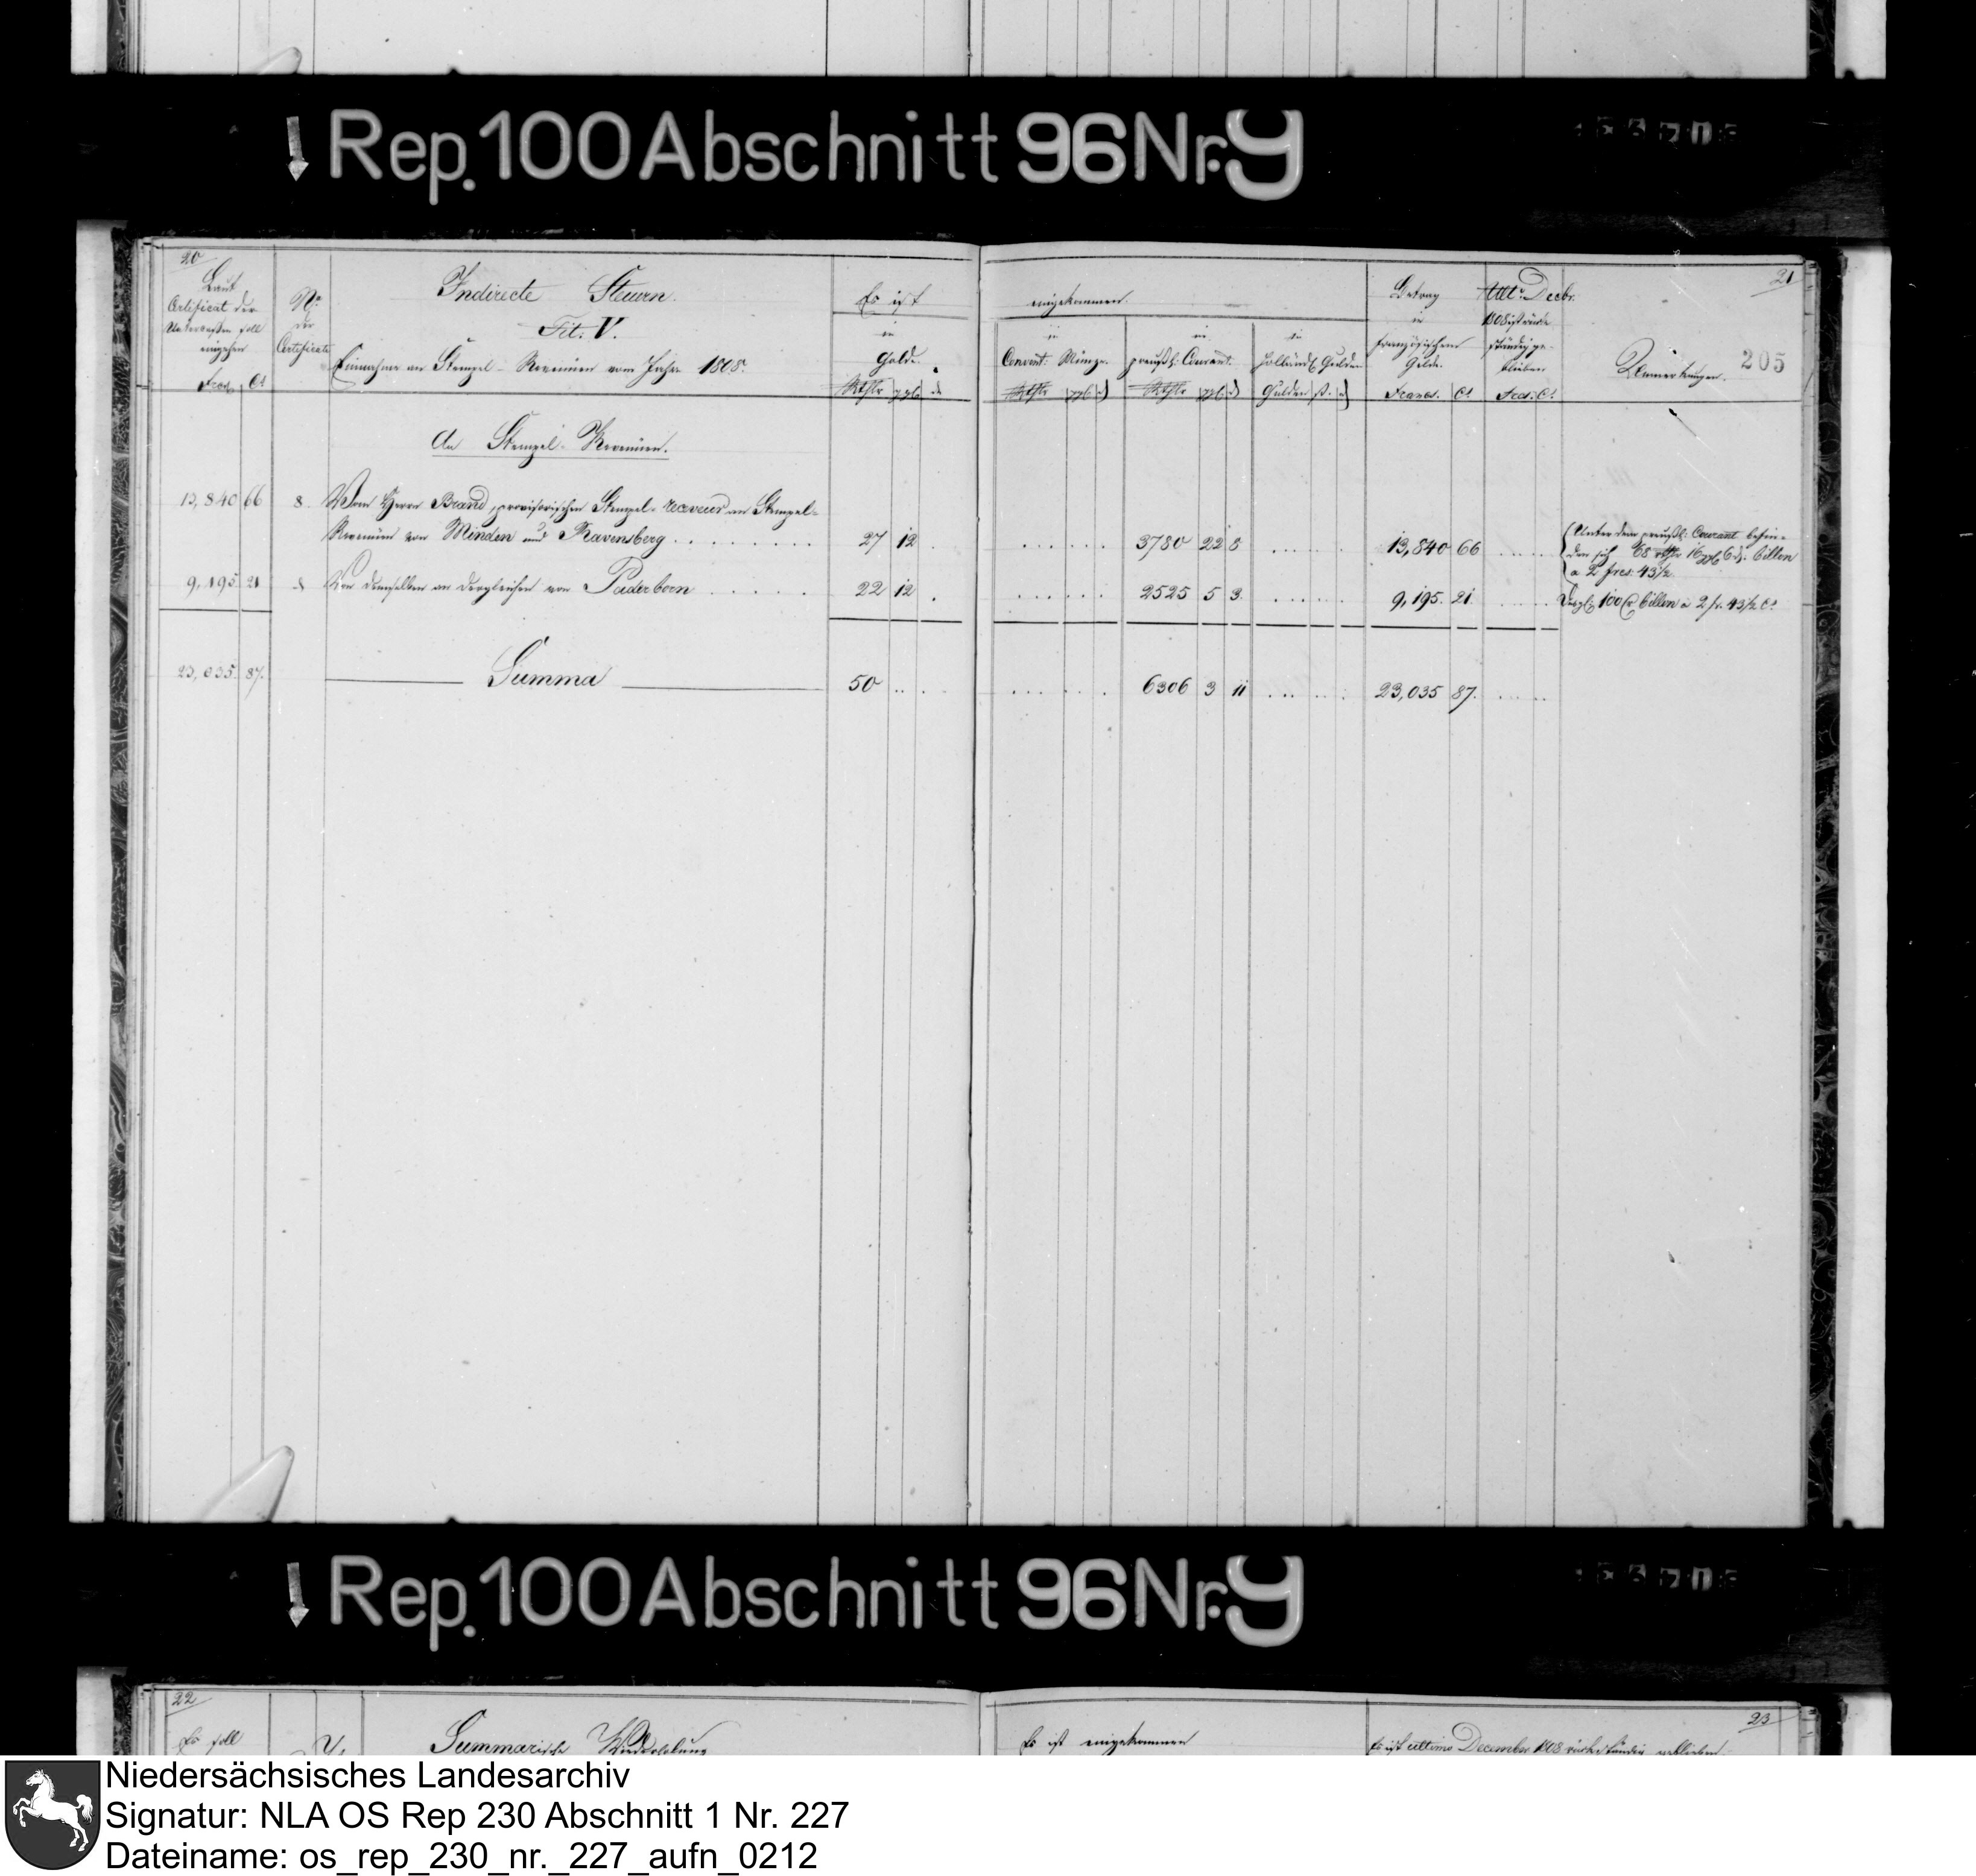 Rep. 100 Abschnitt 96 Nr. 9
20
Laut
Certificat der
Untercassen soll
eingehen
Frcs. Ct
No
der
Certificate
Indirecte Steuern.
Tit: V.
Einnahme an Stempel-Revenüen vom Jahre 1808.
Es ist
in
Golde.
Rthlr ggl. d.
21
eingekommen.
in
Convent: Münze.
Rthlr ggl. d
in
preußl: Courant.
Rthlr ggl. d
in
holländl: Gulden
Gulden ß. d
Betrag
in
französischem
Gelde.
Francs. Ct
Ulto Decbr.
1808 ist rück-
ständig ge-
blieben
Frcs: Ct
Bemerkungen.
205
An Stempel-Revenüen.
13,840 66 8 Vom Herrn Brand, provisorischen Stempel-receveur an Stempel-
Revenüen von Minden und Ravensberg 27 12 . 3780 22 8 13,840 66
Unter dem preußl: Courant befin-
den sich 68 rthlr 16 ggl 6 d: billon
a 2 frcs: 43 1/2
9,195 21 8 Von demselben an dergleichen von Paderborn 22 12 . 2525 5 3 9,195. 21 100 billon a 2 fr. 43 1/2 Ct
23,035 87. Summa 50 6306 3 11 23,035 87.
Rep. 100 Abschnitt 96 Nr. 9
22
Es soll
Summarische Wiederholung
Es ist eingekommen
23
Es ist ultimo December 1808 rückständig geblieben
Niedersächsisches Landesarchiv
Signatur: NLA OS Rep 230 Abschnitt 1 Nr. 227
Dateiname: os_rep_230_nr._227_aufn_0212